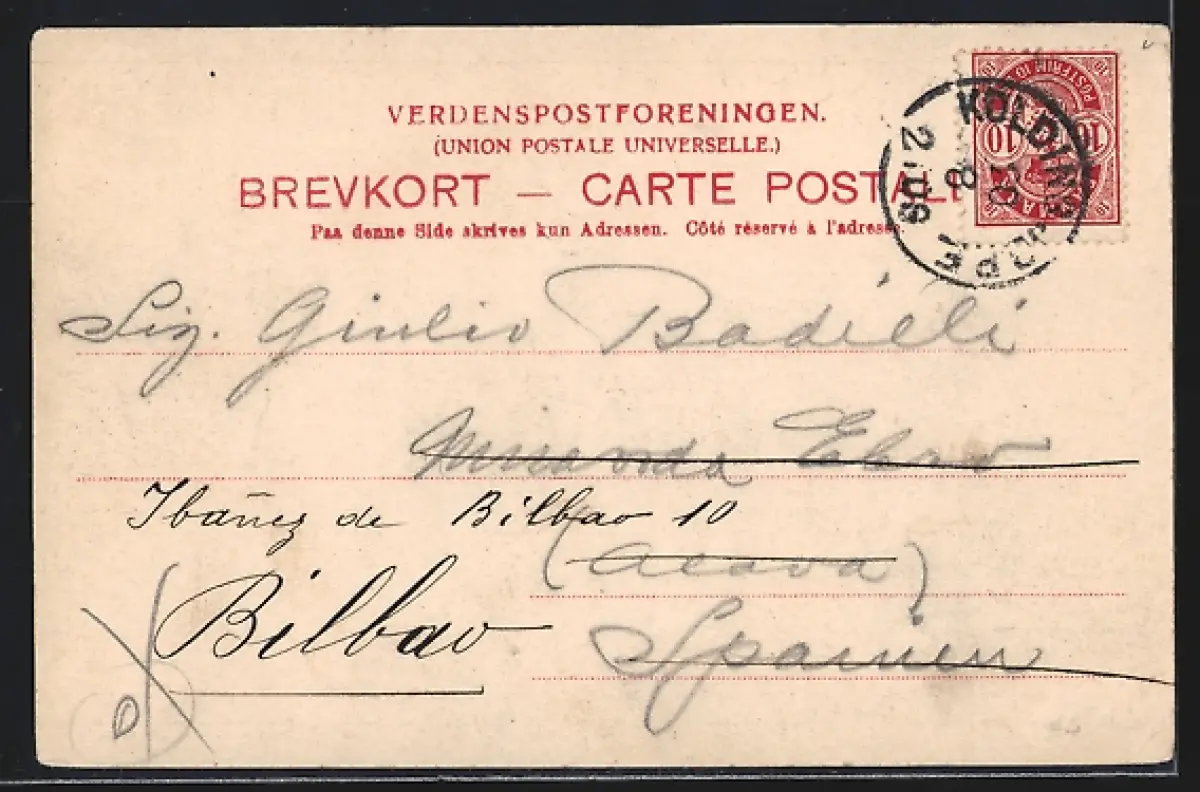 VERDENSPOSTFORENINGEN.
(UNION POSTALE UNIVERSELLE.)
BREVKORT — CARTE POSTAL
Paa denne Side skrives kun Adressen. Côté réservé à l'adresse.
POSTFRIM 10
10 10
KOLDING
2.08
8
JOPE
Sig. Giulio Badieli
Miranda Ebro
Ibañez de Bilbao 10
(Alava)
Bilbao
Spanien